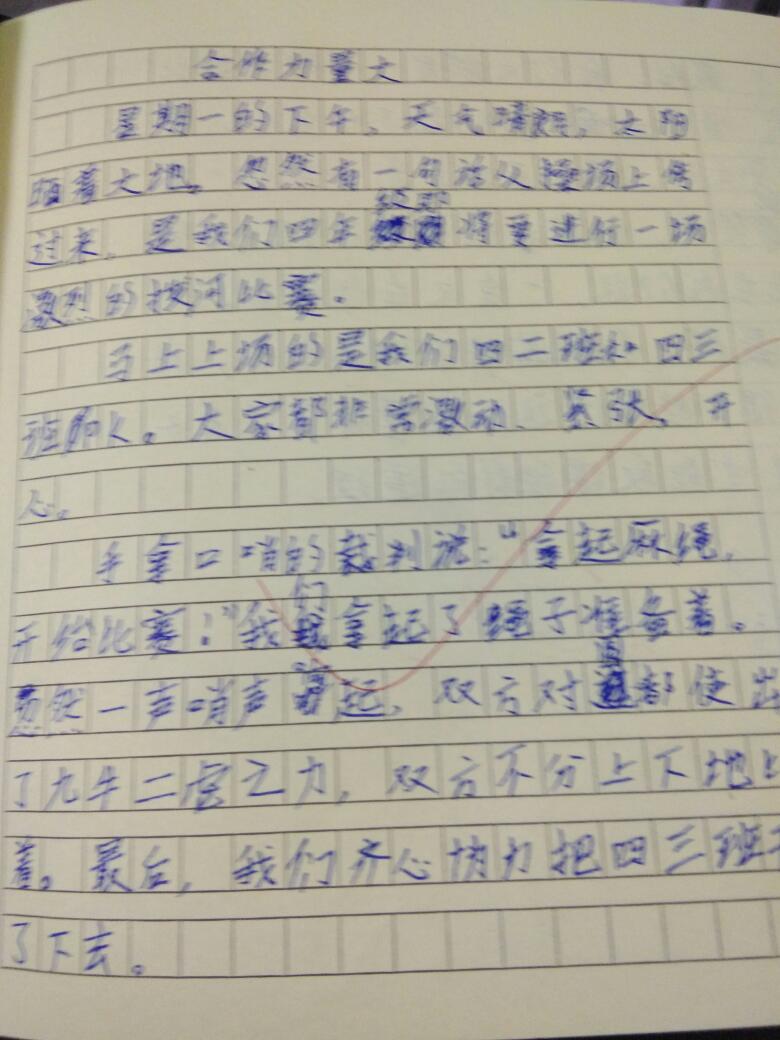 合作力量大
星期一的下午，天气晴朗，太阳
晒着大地。忽然有一句话从操场上传
过来，是我们四年级即将要进行一场
激烈的拔河比赛。
马上上场的是我们四二班和四三
班的人。大家都非常激动、紧张、开
心。
手拿口哨的裁判说：“拿起麻绳，
开给比赛！”我们拿起了绳子准备着。
忽然一声哨声响起，双方对都使出
了九牛二虎之力，双方不分上下地
着。最后，我们齐心协力把四三班
了下去。